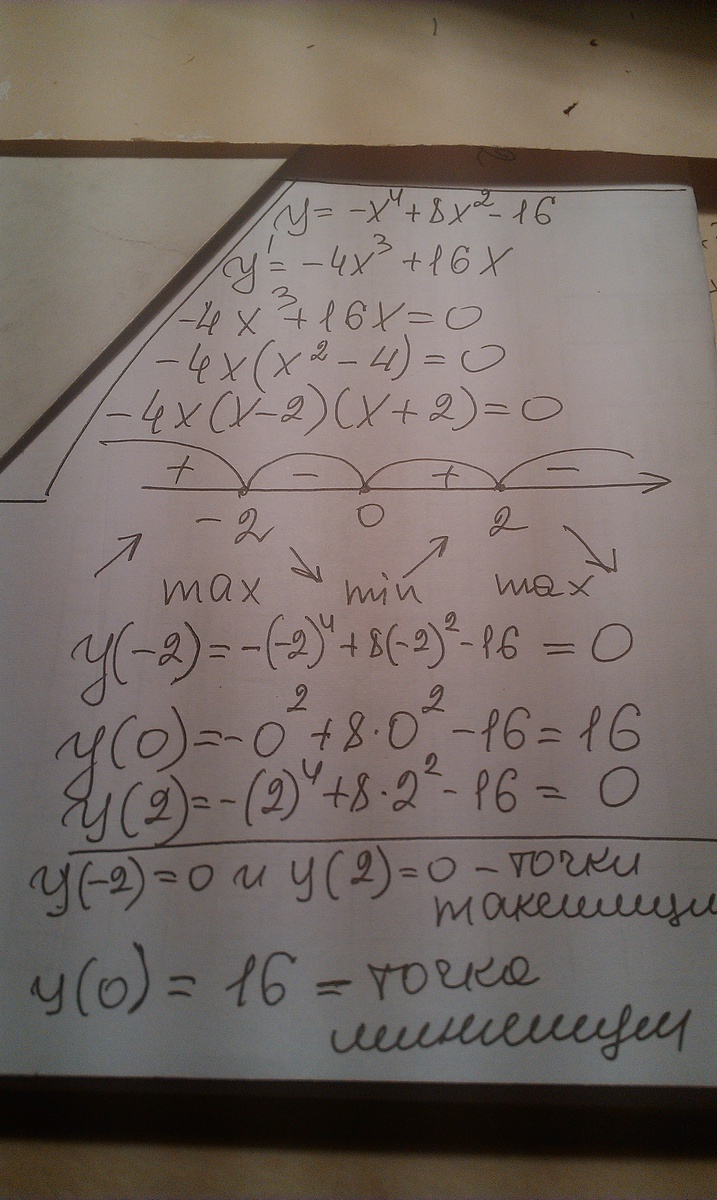 y = -x⁴ + 8x² - 16
y' = -4x³ + 16x
-4x³ + 16x = 0
-4x(x² - 4) = 0
-4x(x-2)(x+2) = 0
+ - + -
-2 0 2
max min max
y(-2) = -(-2)⁴ + 8(-2)² - 16 = 0
y(0) = -0² + 8·0² - 16 = 16
y(2) = -(2)⁴ + 8·2² - 16 = 0
y(-2) = 0 и y(2) = 0 - точки
y(0) = 16 - точка